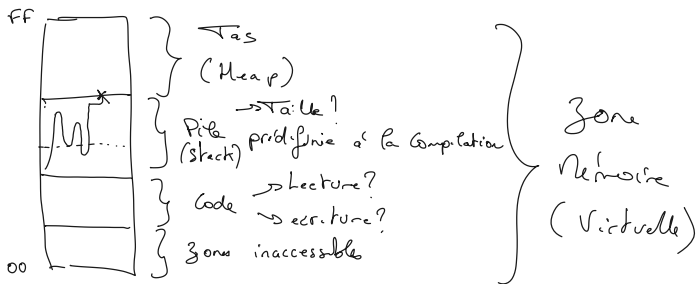 FF
Tas
(Heap)
→ Taille?
Pile prédéfinie à la compilation
(Stack)
Code
→ Lecture?
→ ecriture?
zones inaccessibles
00
Zone
Mémoire
(Virtuelle)